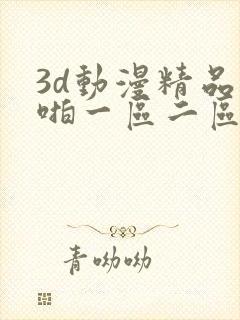 3d動漫精品
啪一區二區
青呦呦